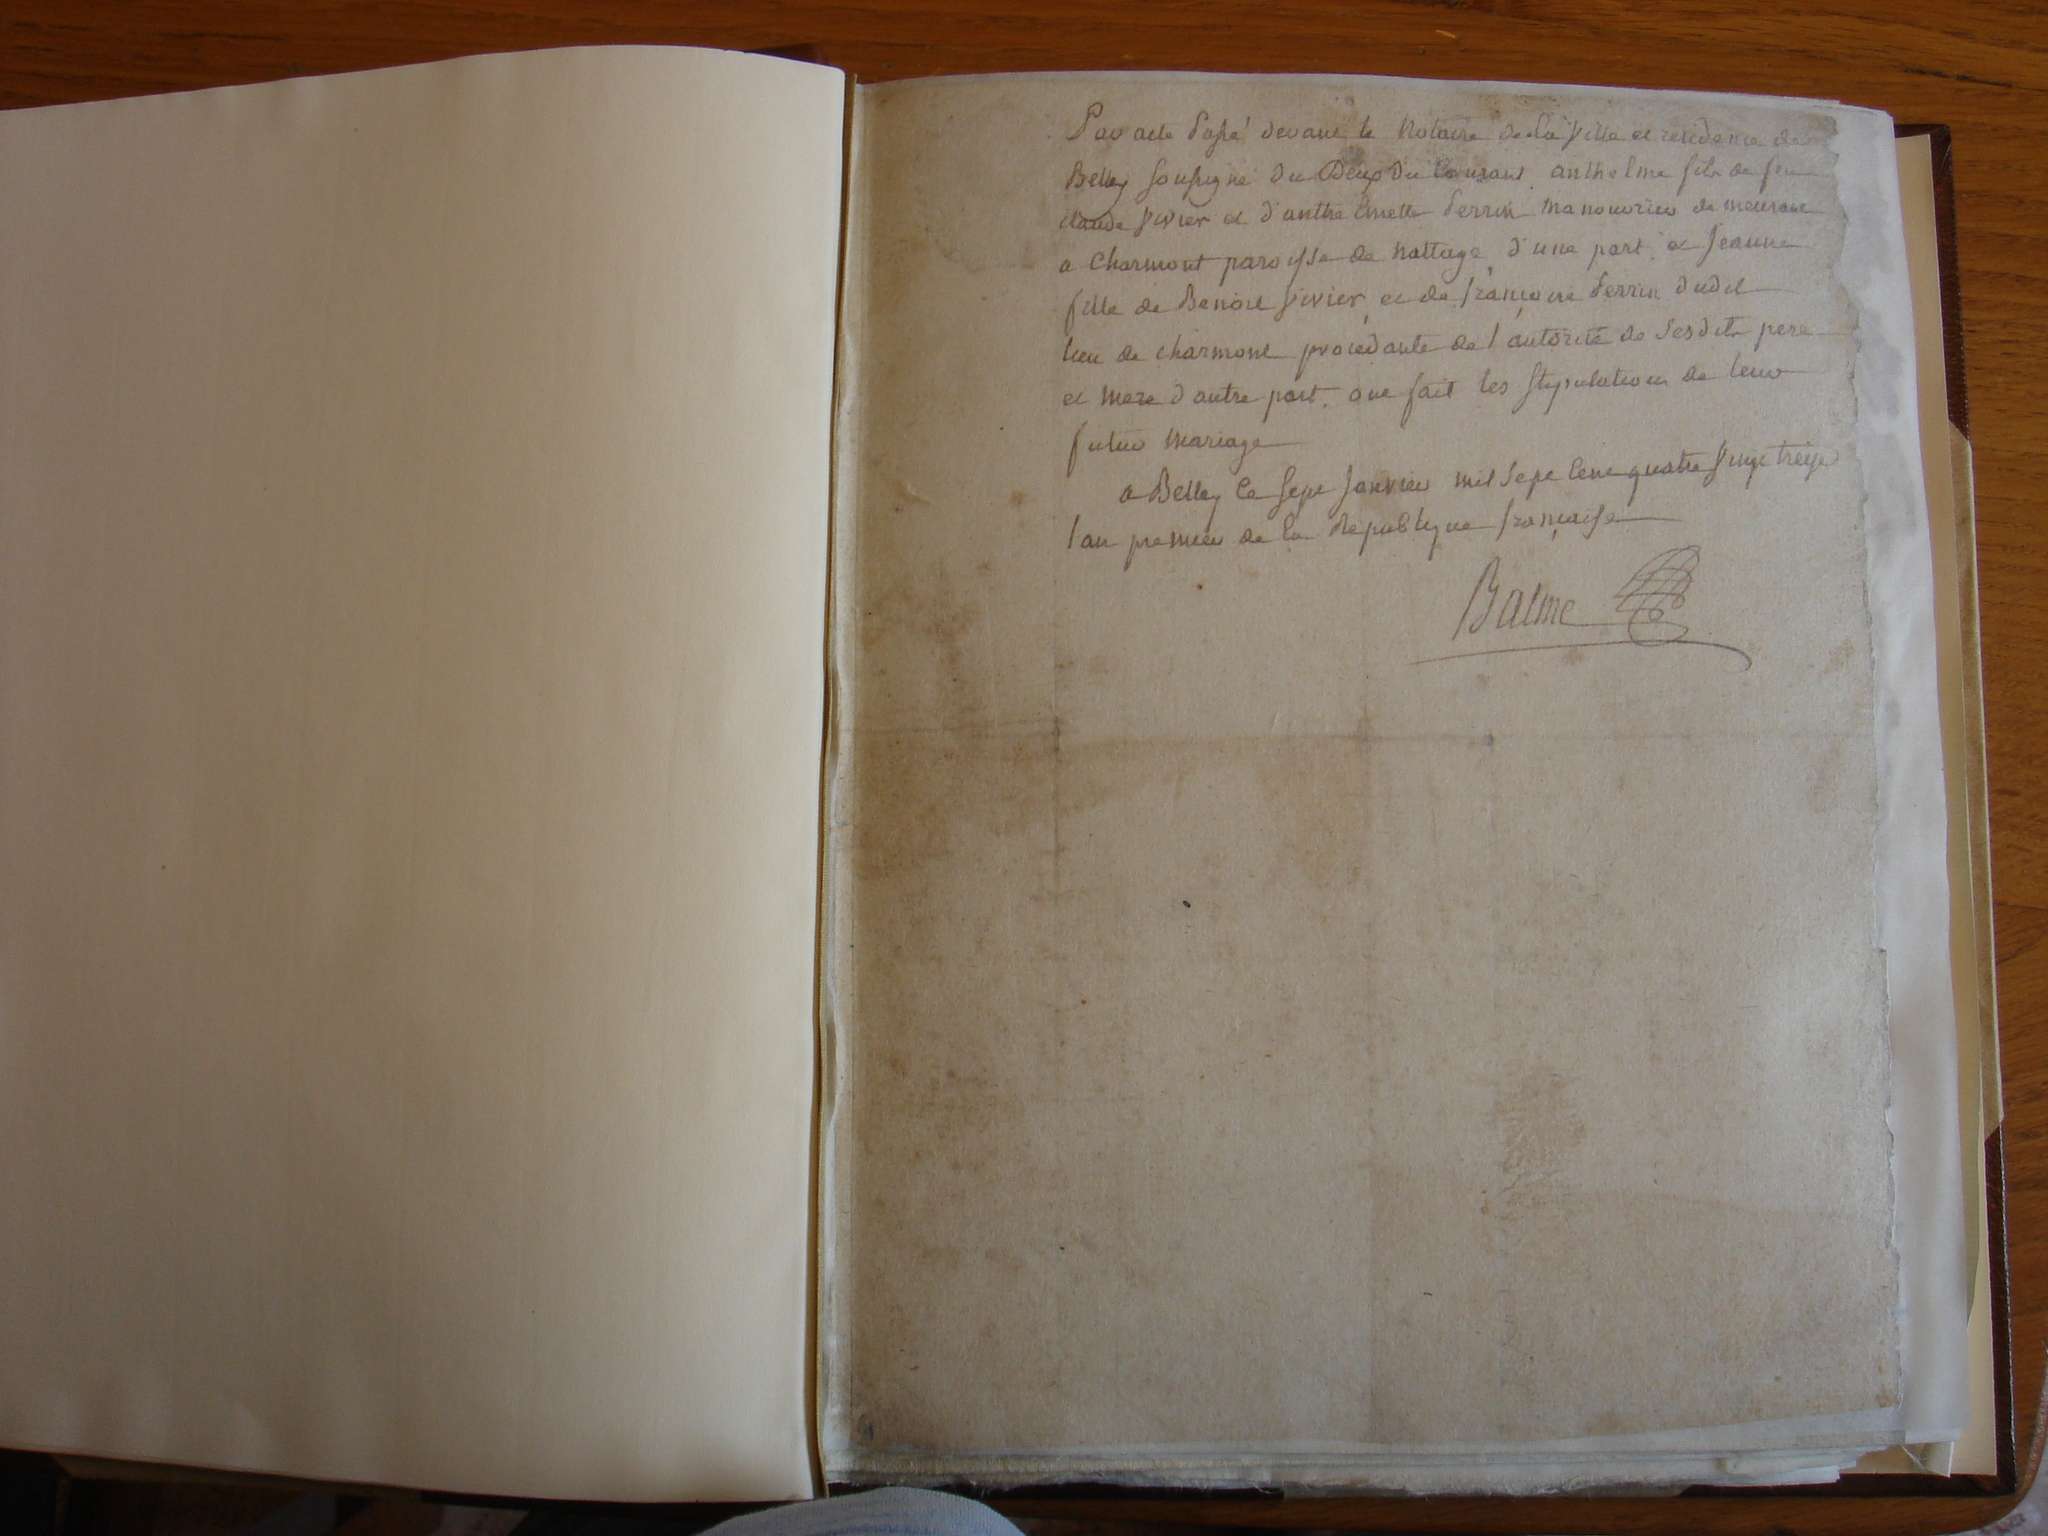 Par acte passé devant le Notaire de la ville et residence de
Belley soussigné du Deux du Courant anthelme fils de feu
claude vivier et d'anthelmette perrin manouvrier demeurant
a charmont paroisse de nattage d'une part, et jeanne
fille de Benoit vivier, et de françoise perrin dudit
lieu de charmont procedante de l'autorité de sesdits pere
et mere d'autre part. ont fait les stipulations de leur
futur mariage
a Belley le sept janvier mil sept cent quatre vingt treize
l'an premier de la Republique françaisse
Balme